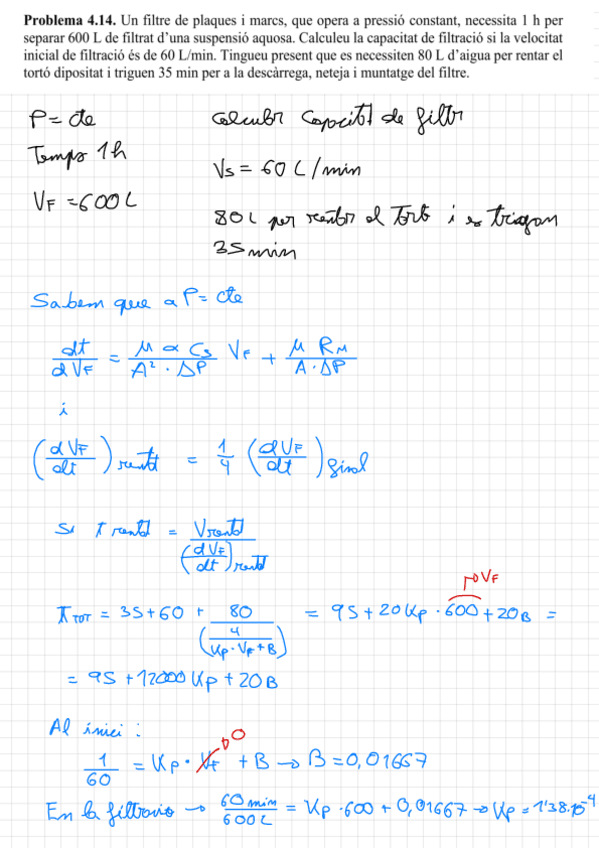 Problema 4.14. Un filtre de plaques i marcs, que opera a pressió constant, necessita 1 h per
separar 600 L de filtrat d'una suspensió aquosa. Calculeu la capacitat de filtració si la velocitat
inicial de filtració és de 60 L/min. Tingueu present que es necessiten 80 L d'aigua per rentar el
tortó dipositat i triguen 35 min per a la descàrrega, neteja i muntatge del filtre.
P = cte
Calcular Capacitat de filtr
Temps 1h
Vs = 60 L/min
VF = 600 L
80L per rentar el Tortó i es trigan
35 min
Sabem que a P = cte
dt/dVF = μ α Cs/A² · ΔP VF + μ RM/A · ΔP
i
(dVF/dt) rentat = 1/4 (dVF/dt) final
Si t rentat = Vrentat/(dVF/dt) rentat
→ VF
tTOT = 35 + 60 + 80/(4/(Kp · VF + B)) = 95 + 20 Kp · 600 + 20B =
= 95 + 12000 Kp + 20B
Al inici :
→ 0
1/60 = Kp · VF + B → B = 0,01667
En la filtració → 60 min/600 L = Kp · 600 + 0,01667 → Kp = 1'38·10⁻⁴